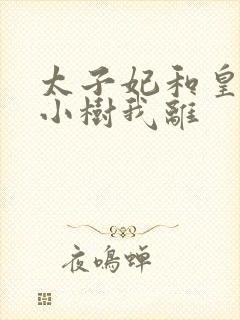 太子妃和皇
小樹我離
夜鳴蟬